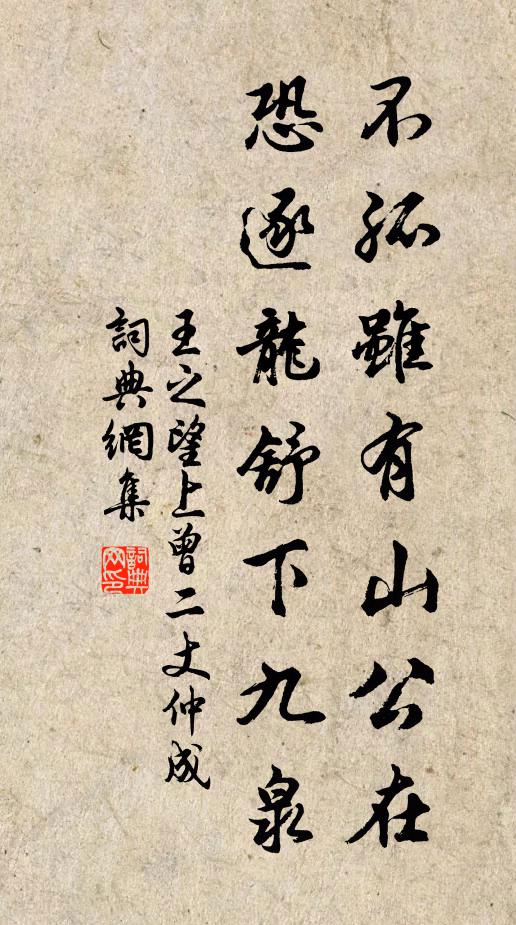 不孤雖有山公在
恐逐龍舒下九泉
王之望上曾二丈仲成
詞典網集
詞典網印